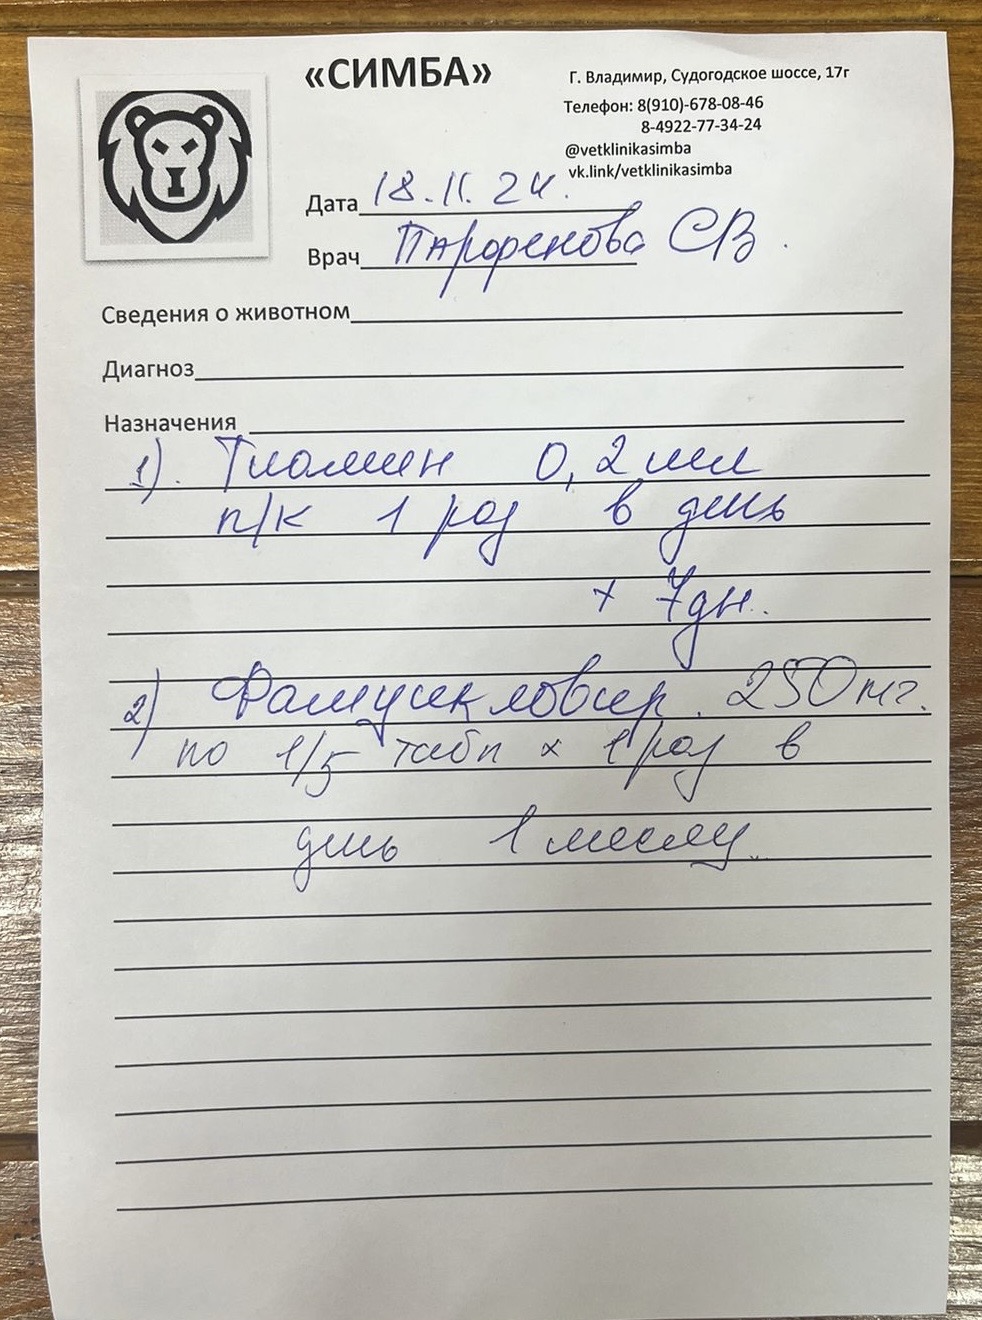 «СИМБА»
Г. Владимир, Судогодское шоссе, 17г
Телефон: 8(910)-678-08-46
8-4922-77-34-24
@vetklinikasimba
vk.link/vetklinikasimba
Дата 18.11.24.
Врач Парфенова СВ.
Сведения о животном
Диагноз
Назначения
1). Тиамин 0,2 мл
п/к 1 раз в день
+ 7дн.
2) Фамцикловир. 250 мг.
по 1/5 табл х 1 раз в
день 1 месяц